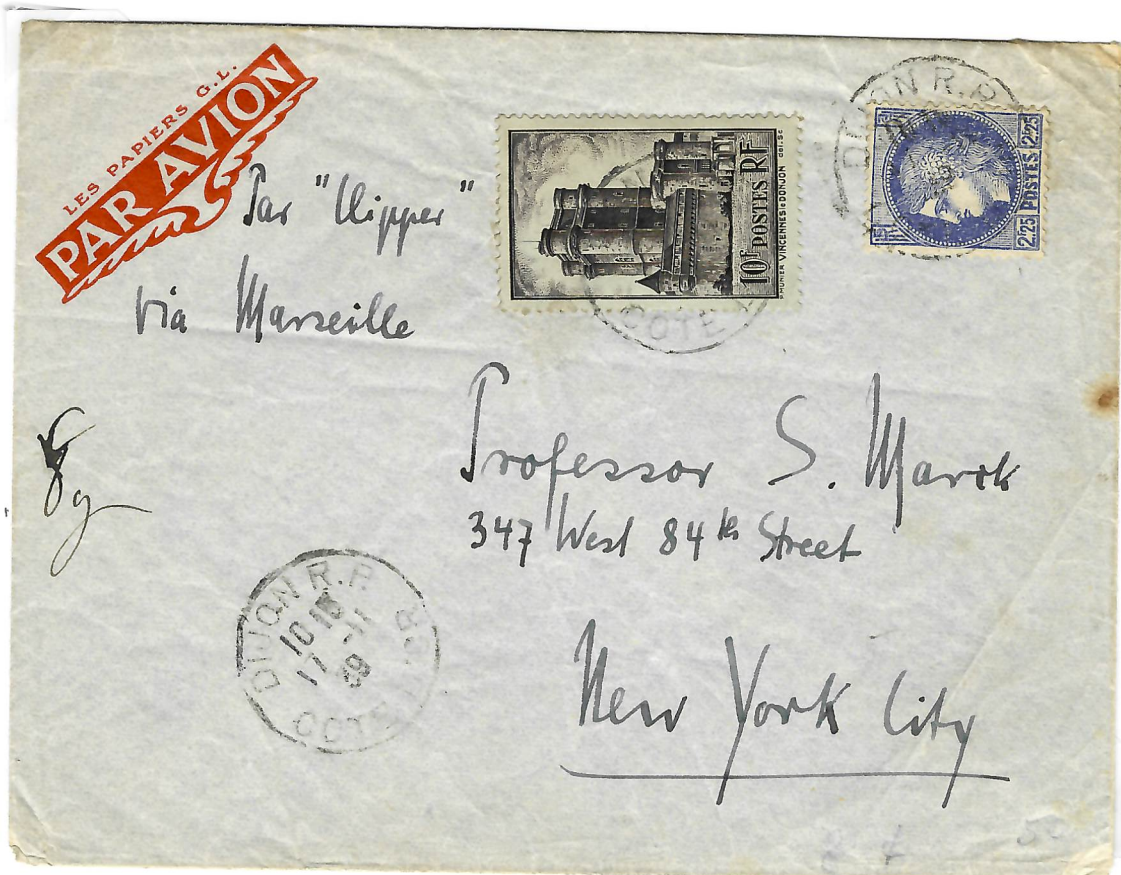 LES PAPIERS G.L.
PAR AVION
Par "Clipper"
via Marseille
10F POSTES RF
VINCENNES·DONJON
2.25 POSTES 2.25
DIJON R.P.
COTE
8g
Professor S. Marck
347 West 84th Street
New York City
DIJON R.P.
17
39
COTE